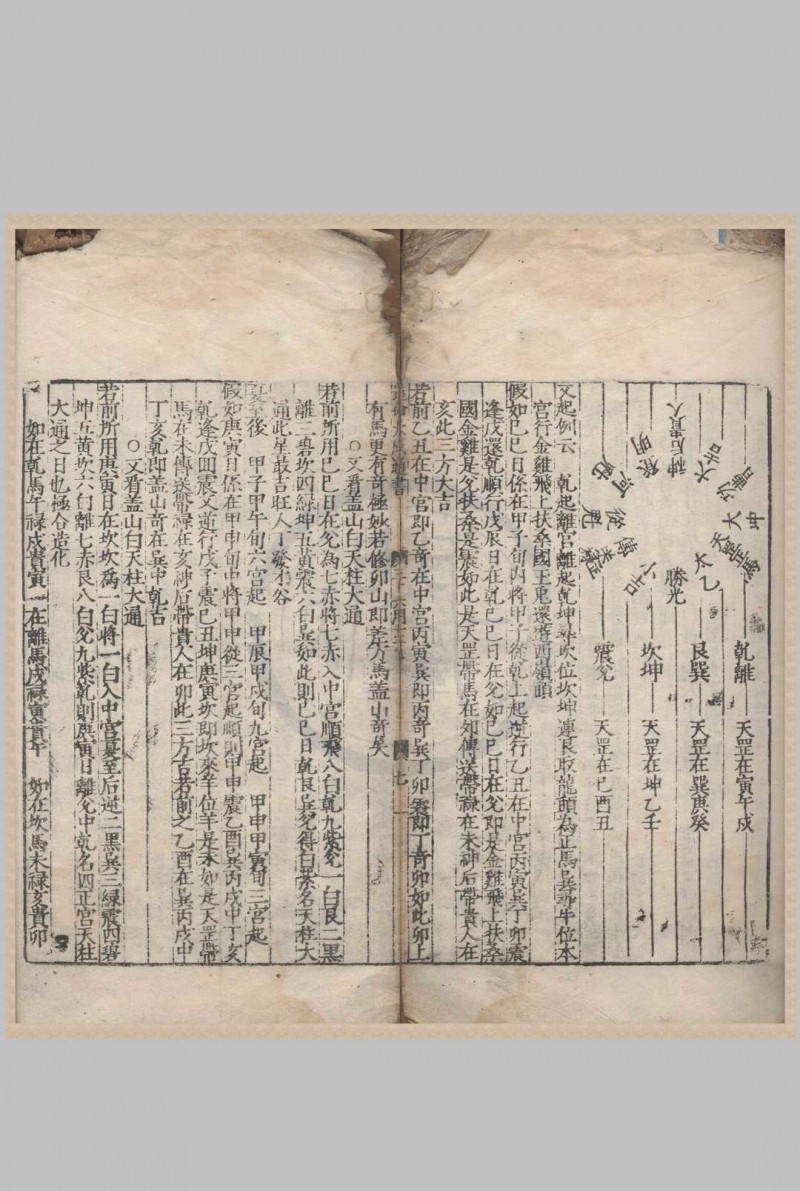 乾離　天罡在寅午戌
艮巽　天罡在巽庚癸
坎坤　天罡在坤乙壬
震兌　天罡在巳酉丑
勝光
太乙
小吉
傳送
從魁
河魁
神后貴人
大吉
又起例云　乾起離宮離起乾坤尋坎位坎坤連艮取龍頭為正馬巽尋牛位本
宮行金雞飛上扶桑國玉兎還落西嶺頭
假如巳巳日係在甲子旬內將甲子從乾上起逆行乙丑在中宮丙寅巽丁卯震
逢戊還乾順行戊辰日在乾巳巳日在兌如巳巳日在兌即是金雞飛上扶桑
國金雞是兌扶桑是震如此是天罡帶馬在如傳送帶祿在未神后帶貴人在
亥此三方大吉
若前乙丑在中宮即乙奇在中宮丙寅巽即丙奇巽丁卯震即丁奇卯如此卯上
有馬更有奇極妙若修卯山即差方馬蓋山奇矣
○又看蓋山白天柱大通
若前所用巳巳日在兌為七赤將七赤入中宮順飛八白乾九紫兌一白艮二黑
離三碧坎四綠坤五黃震六白巽如此則巳巳日乾艮巽兌得白紫名天柱大
通此星最吉旺人丁發才谷
夏至後　甲子甲午旬六宮起　甲辰甲戌旬九宮起　甲申甲寅旬三宮起
假如庚寅日係在甲申旬中將甲申從三宮起順則甲申震乙酉巽丙戌中丁亥
乾逢戊囬震又逆行戊子震巳丑坤庚寅坎即坎來羊位羊是未如是天罡帶
馬在未傳送帶祿在亥神后帶貴人在卯此三方吉若前之乙酉在巽丙戌中
丁亥乾即蓋山奇在巽中乾吉
○又看蓋山白天柱大通
若前所用庚寅日在坎坎為一白將一白入中宮夏至后逆二黑巽三綠震四碧
坤五黃坎六白離七赤艮八白兌九紫乾則庚寅日離兌中乾名四正宮天柱
大通之日也極合造化
如在乾馬午祿戌貴寅　一在離馬戌祿寅貴午　如在坎馬未祿亥貴卯